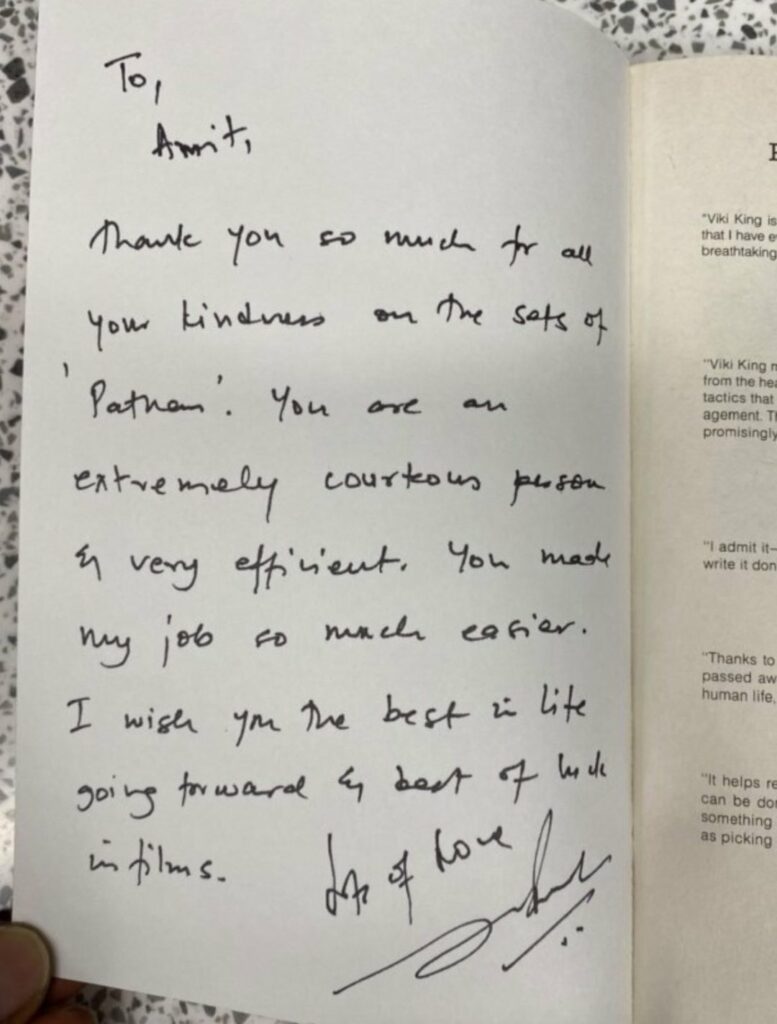 To,
Amrit,
Thank you so much for all
your kindness on the sets of
'Pathan'. You are an
extremely courteous person
& very efficient. You made
my job so much easier.
I wish you the best in life
going forward & best of luck
in films.
Lots of Love
"Viki King is
that I have e
breathtaking
"Viki King m
from the hea
tactics that
agement. T
promisingly
"I admit it—
write it don
"Thanks to
passed aw
human life,
"It helps re
can be do
something
as picking